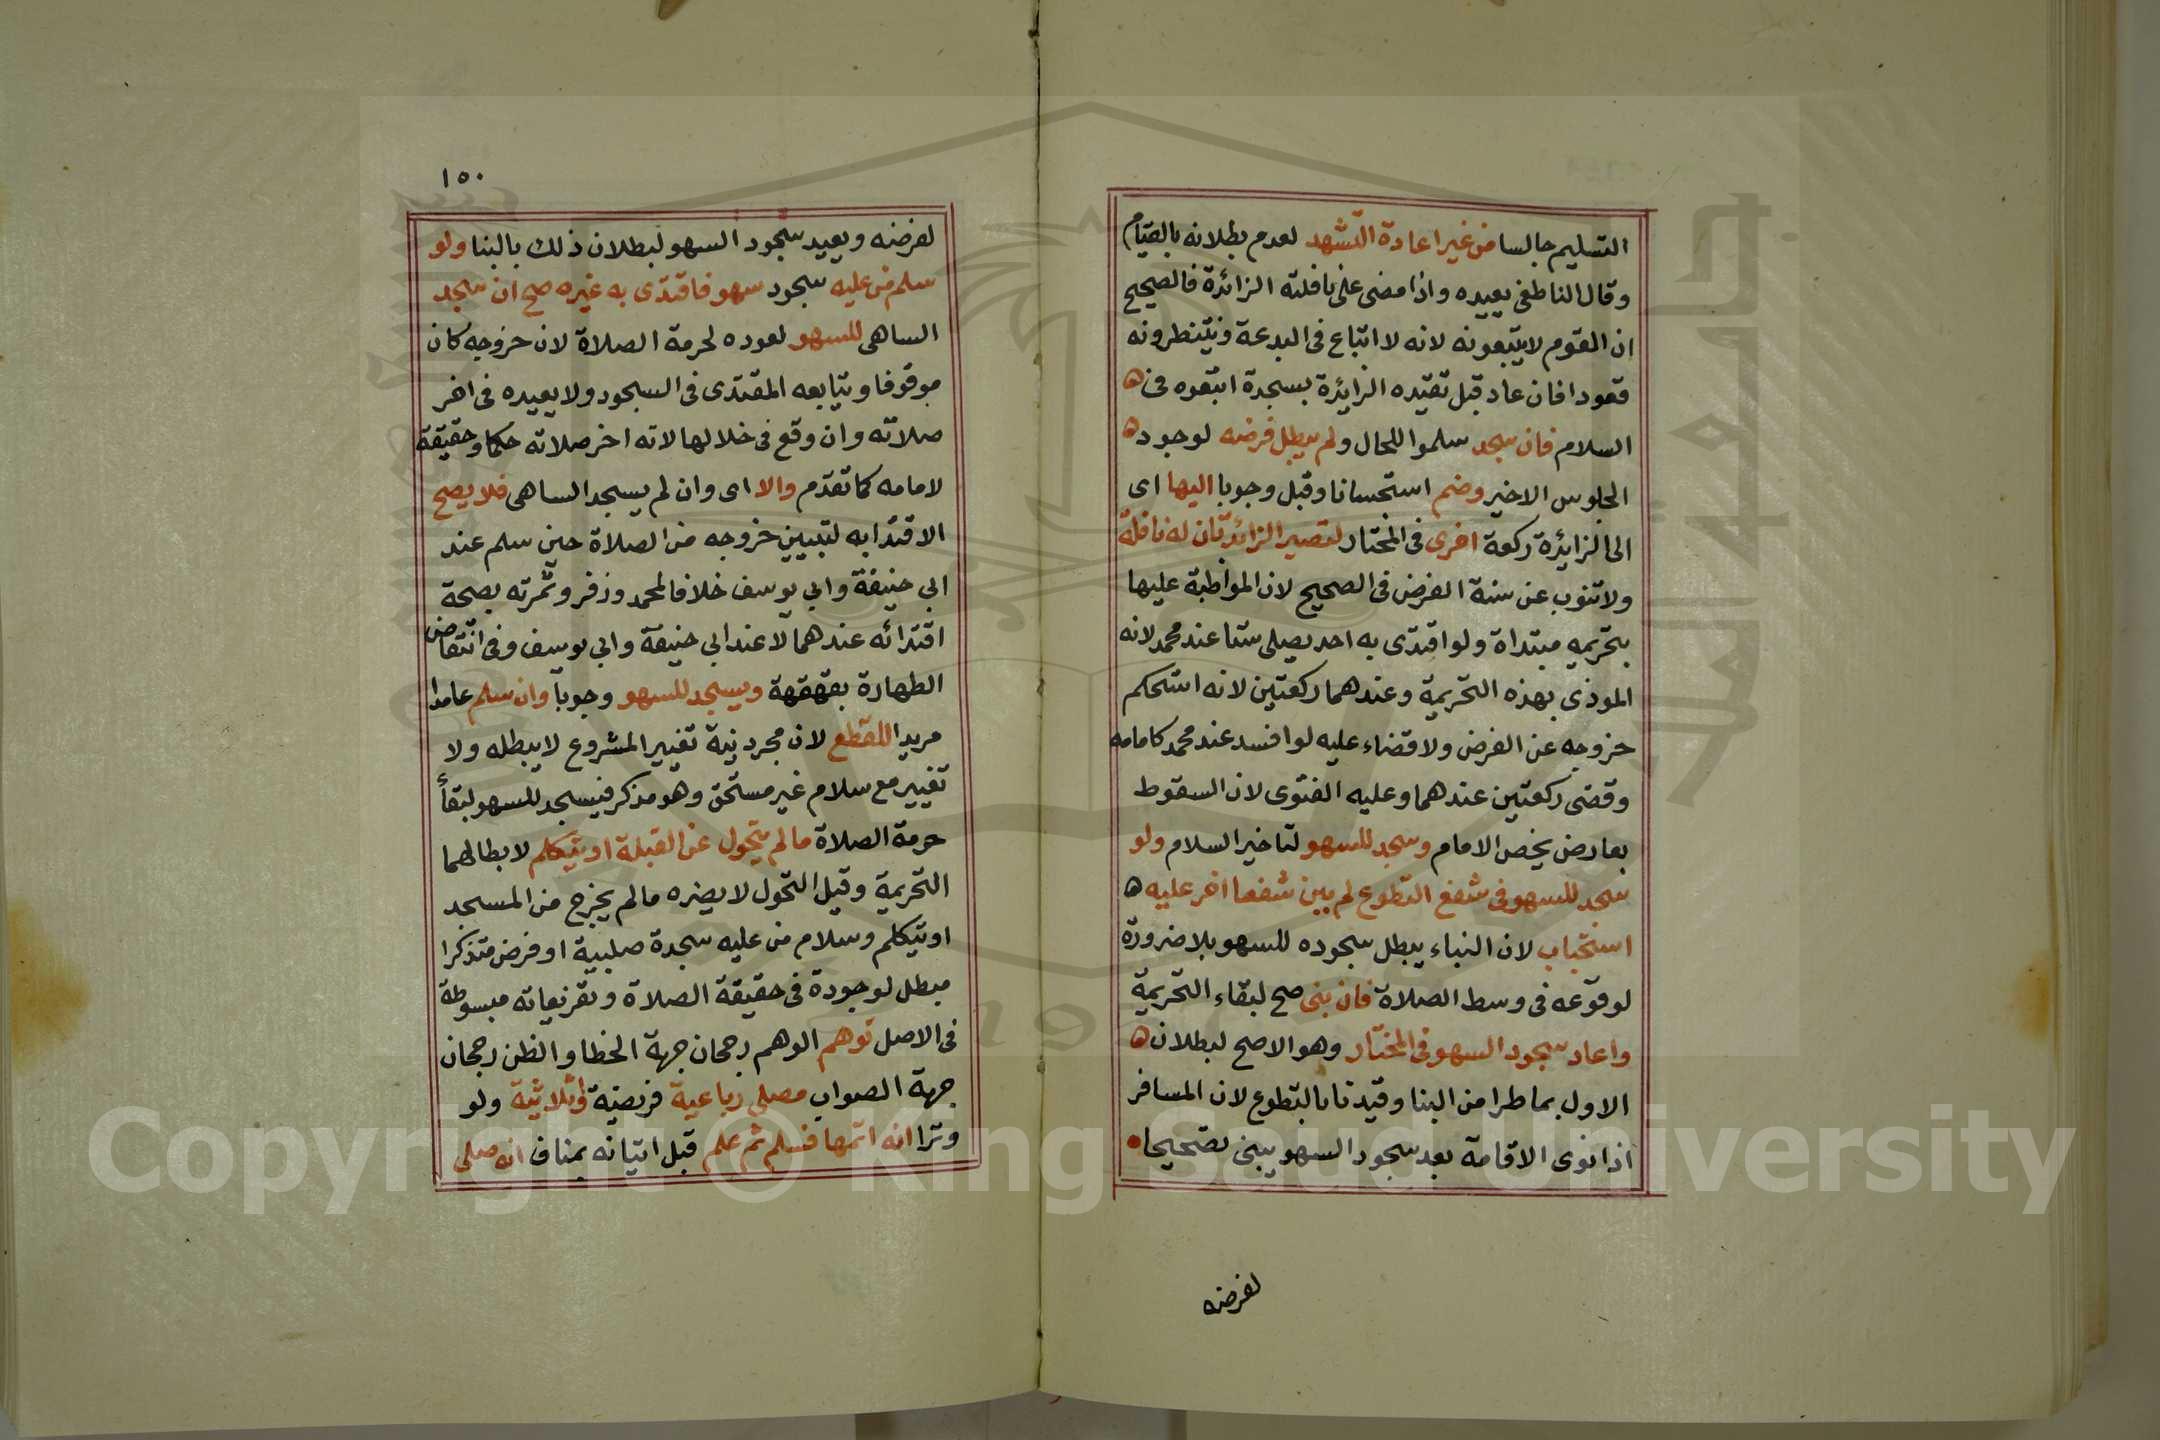 التسليم جالسا من غير اعادة التشهد لعدم بطلانه بالقيام
وقال الناطفي يعيده واذا مضى على نافلته الزائدة فالصحيح
ان القوم لا يتبعونه لانه لا اتباع في البدعة وينتظرونه
قعودا فان عاد قبل تقيده الزايدة بسجدة اتبعوه في ه
السلام فان سجد سلموا للحال ولم يبطل فرضه لوجود ه
الجلوس الاخير وضم استحسانا وقيل وجوبا اليها اى
الى الزايدة ركعة اخرى في المختار لتصير الزائدتان له نافلة
ولا تنوب عن سنة الفرض في الصحيح لان المواظبة عليها
بتحريمه مبتداة ولو اقتدى به احد يصلى ستا عند محمد لانه
الموذى بهذه التحريمة وعندهما ركعتين لانه استحكم
خروجه عن الفرض ولا قضاء عليه لو افسد عند محمد كامامه
وقضى ركعتين عندهما وعليه الفتوى لان السقوط
بعارض يخص الامام وسجد للسهو لتاخير السلام ولو
سجد للسهو في شفع التطوع لم يبن شفعا اخر عليه ه
استحباب لان البناء يبطل سجوده للسهو بلا ضرورة
لوقوعه في وسط الصلاة فان بنى صح لبقاء التحريمة
واعاد سجود السهو في المختار وهو الاصح لبطلان ه
الاول بما طرا من البنا وقيدنا بالتطوع لان المسافر
اذا نوى الاقامة بعد سجود السهو يبنى تصحيحا
لفرضه
١٥٠
لفرضه ويعيد سجود السهو لبطلان ذلك بالبنا ولو
سلم من عليه سجود سهو فاقتدى به غيره صح ان سجد
الساهى للسهو لعوده لحرمة الصلاة لان خروجه كان
موقوفا ويتابعه المقتدى في السجود ولا يعيده في اخر
صلاته وان وقع في خلالها لانه اخر صلاته حكما وحقيقة
لامامه كما تقدم والا اى وان لم يسجد الساهى فلا يصح
الاقتدا به لتبيين خروجه من الصلاة حين سلم عند
ابي حنيفة وابي يوسف خلافا لمحمد وزفر وثمرته بصحة
اقتدائه عندهما لا عند ابي حنيفة وابي يوسف وفي انتقاض
الطهارة بقهقهة ويسجد للسهو وجوبا وان سلم عامدا
مريدا للقطع لان مجرد نية تغيير المشروع لا يبطله ولا
تغيير مع سلام غير مستحق وهو مذكر فيسجد للسهو لبقأ
حرمة الصلاة ما لم يتحول عن القبلة او يتكلم لابطالهما
التحريمة وقيل التحول لا يضره ما لم يخرج من المسجد
او يتكلم وسلام من عليه سجدة صلبية او فرض متذكرا
مبطل لوجودة في حقيقة الصلاة وتفريعاته مبسوطة
في الاصل توهم الوهم رجحان جهة الخطا والظن رجحان
جهة الصواب مصلي رباعية فريضة او ثلاثية ولو
وترا انه اتمها فسلم ثم علم قبل اتيانه بمناف انه صلى
Copyright © King Saud University